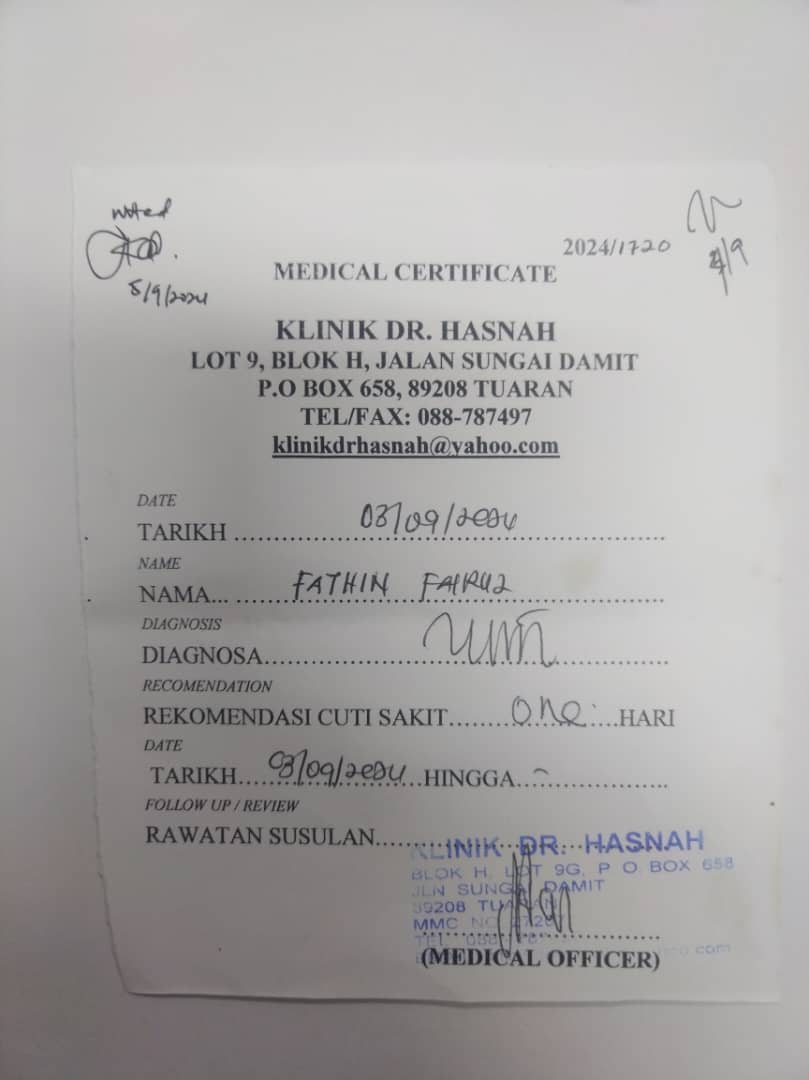 noted
5/9/2024
4/9
2024/1720
MEDICAL CERTIFICATE
KLINIK DR. HASNAH
LOT 9, BLOK H, JALAN SUNGAI DAMIT
P.O BOX 658, 89208 TUARAN
TEL/FAX: 088-787497
klinikdrhasnah@yahoo.com
DATE
TARIKH 03/09/2024
NAME
NAMA... FATHIN FAIRUZ
DIAGNOSIS
DIAGNOSA
RECOMENDATION
REKOMENDASI CUTI SAKIT one HARI
DATE
TARIKH 03/09/2024 HINGGA -
FOLLOW UP / REVIEW
RAWATAN SUSULAN
KLINIK DR. HASNAH
BLOK H, LOT 9G, P O BOX 658
JLN SUNGAI DAMIT
89208 TUARAN
MMC NO
TEL 088
(MEDICAL OFFICER)